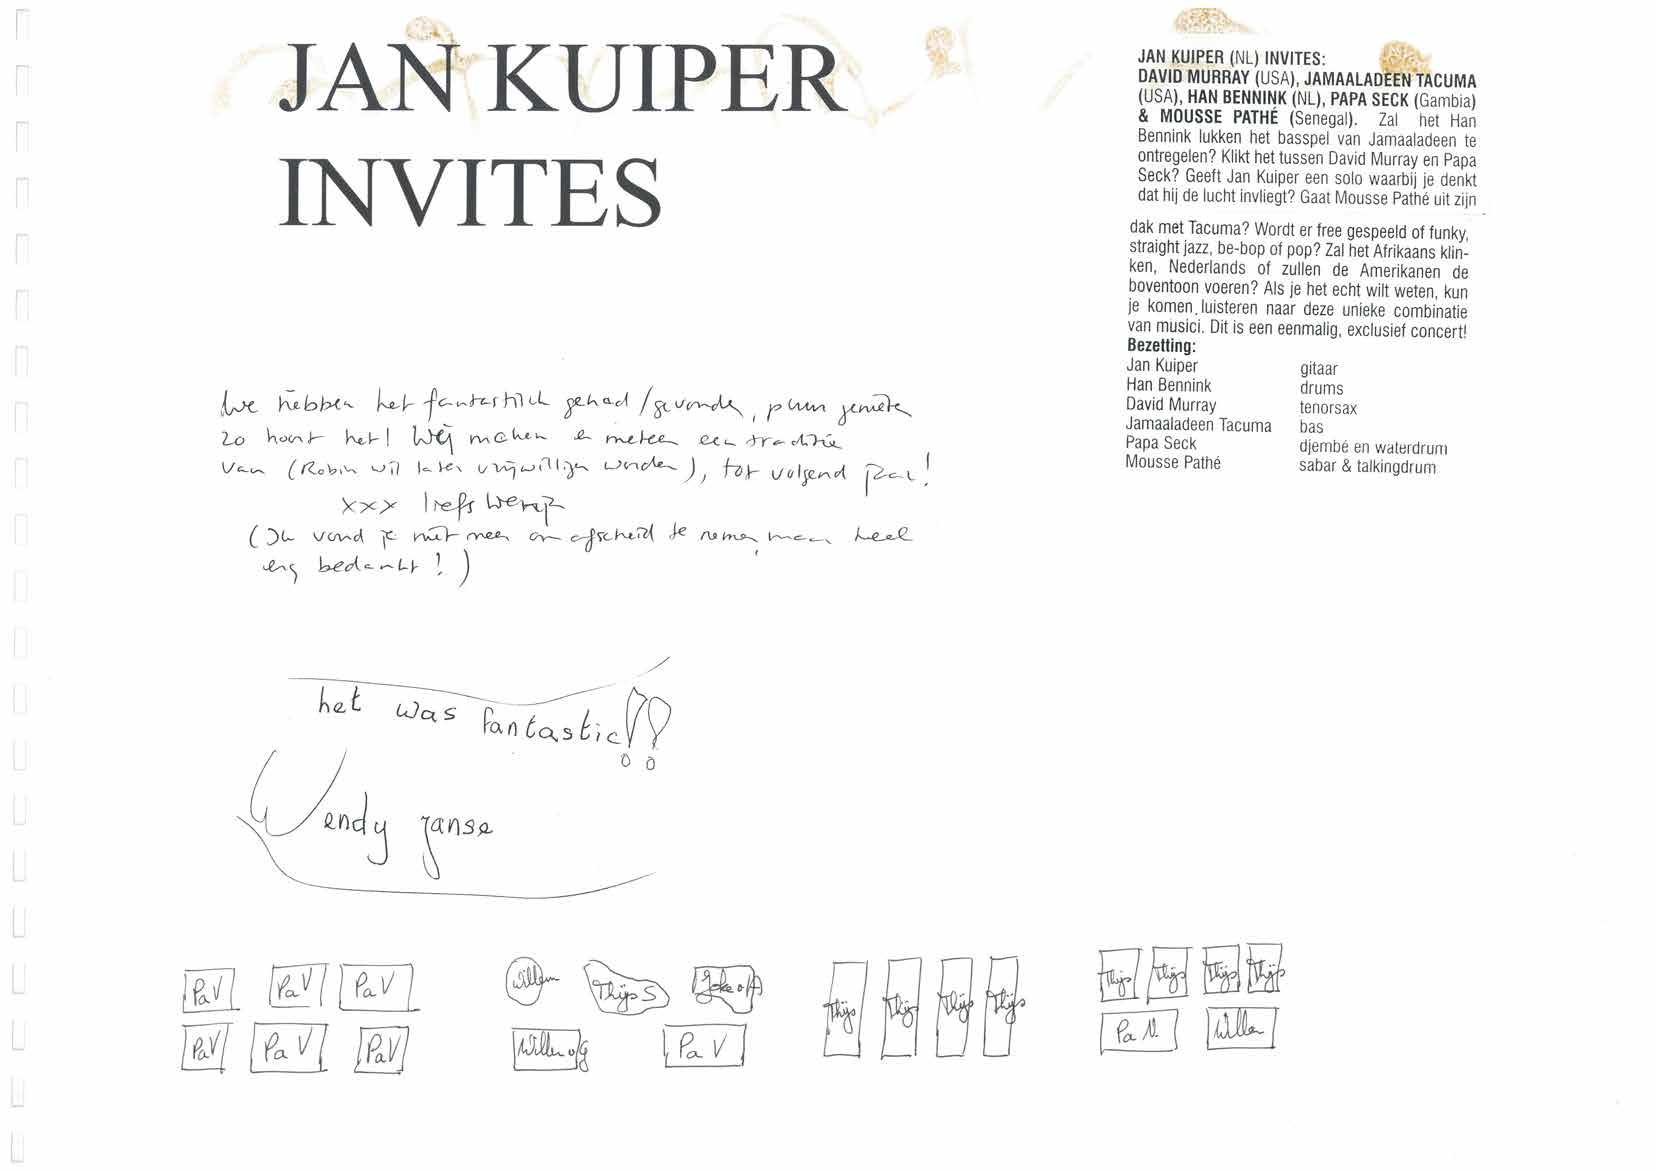 JAN KUIPER
INVITES
JAN KUIPER (NL) INVITES:
DAVID MURRAY (USA), JAMAALADEEN TACUMA
(USA), HAN BENNINK (NL), PAPA SECK (Gambia)
& MOUSSE PATHÉ (Senegal). Zal het Han
Bennink lukken het basspel van Jamaaladeen te
ontregelen? Klikt het tussen David Murray en Papa
Seck? Geeft Jan Kuiper een solo waarbij je denkt
dat hij de lucht invliegt? Gaat Mousse Pathé uit zijn
dak met Tacuma? Wordt er free gespeeld of funky,
straight jazz, be-bop of pop? Zal het Afrikaans klin-
ken, Nederlands of zullen de Amerikanen de
boventoon voeren? Als je het echt wilt weten, kun
je komen luisteren naar deze unieke combinatie
van musici. Dit is een eenmalig, exclusief concert!
Bezetting:
Jan Kuiper gitaar
Han Bennink drums
David Murray tenorsax
Jamaaladeen Tacuma bas
Papa Seck djembé en waterdrum
Mousse Pathé sabar & talkingdrum
We hebben het fantastisch gehad / gevonden, puur genieten
zo hoort het! Wij maken er meteen een traditie
van (Robin wil later vrijwilliger worden), tot volgend jaar!
xxx liefs
(Ik vond je niet meer om afscheid te nemen, maar heel
erg bedankt!)
het was fantastic!!
Wendy Janse
PaV PaV PaV
PaV PaV PaV
Willem Thijs S
PaV
Thijs Thijs Thijs Thijs
Thijs Thijs Thijs Thijs
Pa V. Willem